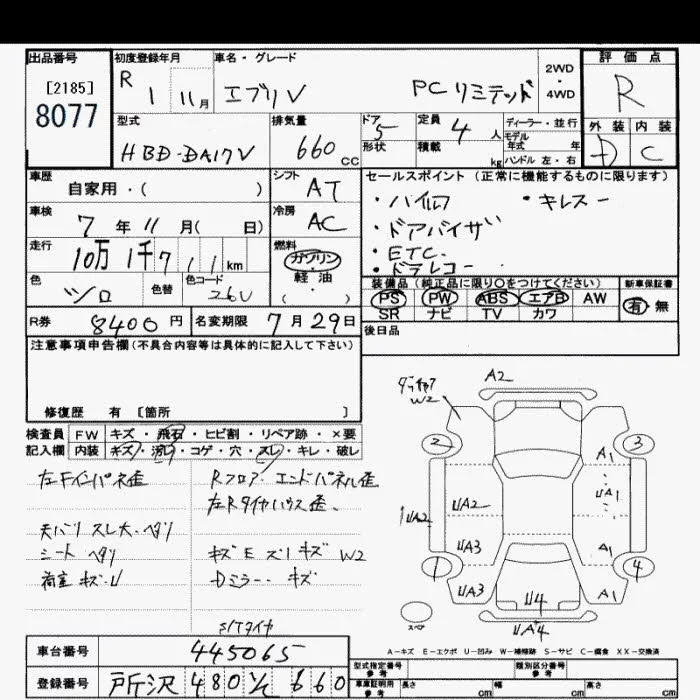 出品番号 初度登録年月 車名・グレード 2WD・4WD 評価点
[2185]
8077
R 1 11月 エブリV PCリミテッド R
型式 排気量 ドア 定員 ディーラー・並行
HBD-DA17V 660 CC 5 4人 モデル 年式 年
形状 積載 kg ハンドル 左・右
外装 内装
D C
車歴 シフト セールスポイント (正常に機能するものに限ります)
自家用・( ) AT ・ハイルーフ ・キレスー
車検 冷房 ・ドアバイザー
7年11月( 日) AC ・ETC.
走行 燃料 ・ドラレコー
10万1千711km ガソリン・軽油・( )
装備品(純正品に限り○をつけてください) 新車保証書
色 色替 色コード PS PW ABS エアB AW 有 無
シロ 26U SR ナビ TV カワ
R券 8400円 名変期限 7月29日 後日品
注意事項申告欄(不具合内容等は具体的に記入して下さい)
修復歴 有 [箇所 ]
検査員 FW キズ・飛石・ヒビ割・リペア跡・×要
記入欄 内装 キズ・汚レ・コゲ・穴・スレ・キレ・破レ
左Fインパネ歪 Rフロア・エンドパネル歪
左Rタイヤハウス歪.
天バリ スレ大・ヘタリ
シート ヘタリ キズE ズリキズ W2
荷室 キズ・U Dミラー・キズ
S/Tタイヤ
A2
W2
2 3
A1
UA2 UA1
UA2
UA3 A1
1 4
UA3 A1
U4
スペア UA4
A-キズ E-エクボ U-凹み W-補修跡 S-サビ C-腐食 XX-交換済
車台番号 445065
型式指定番号 参考 類別区分番号 参考
登録番号 所沢 480 660
車庫証明用 参考 長さ cm 幅 cm 高さ cm